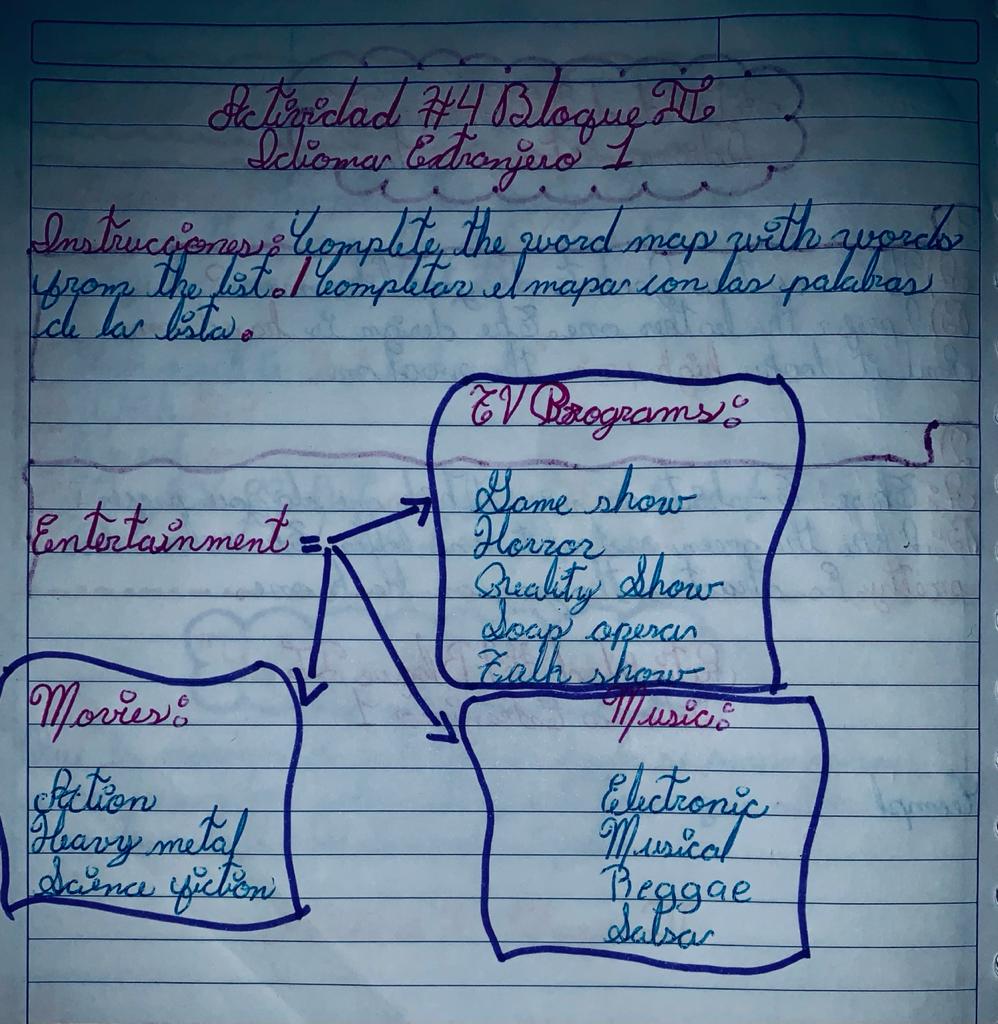 Actividad #4 Bloque III
Idioma Extranjero 1
Instrucciones: Complete the word map with words
from the list. / Completar el mapa con las palabras
de la lista.
TV Programs:
Game show
Horror
Reality Show
Soap opera
Talk show
Entertainment =
Movies:
Action
Heavy metal
Science fiction
Music:
Electronic
Musical
Reggae
Salsa